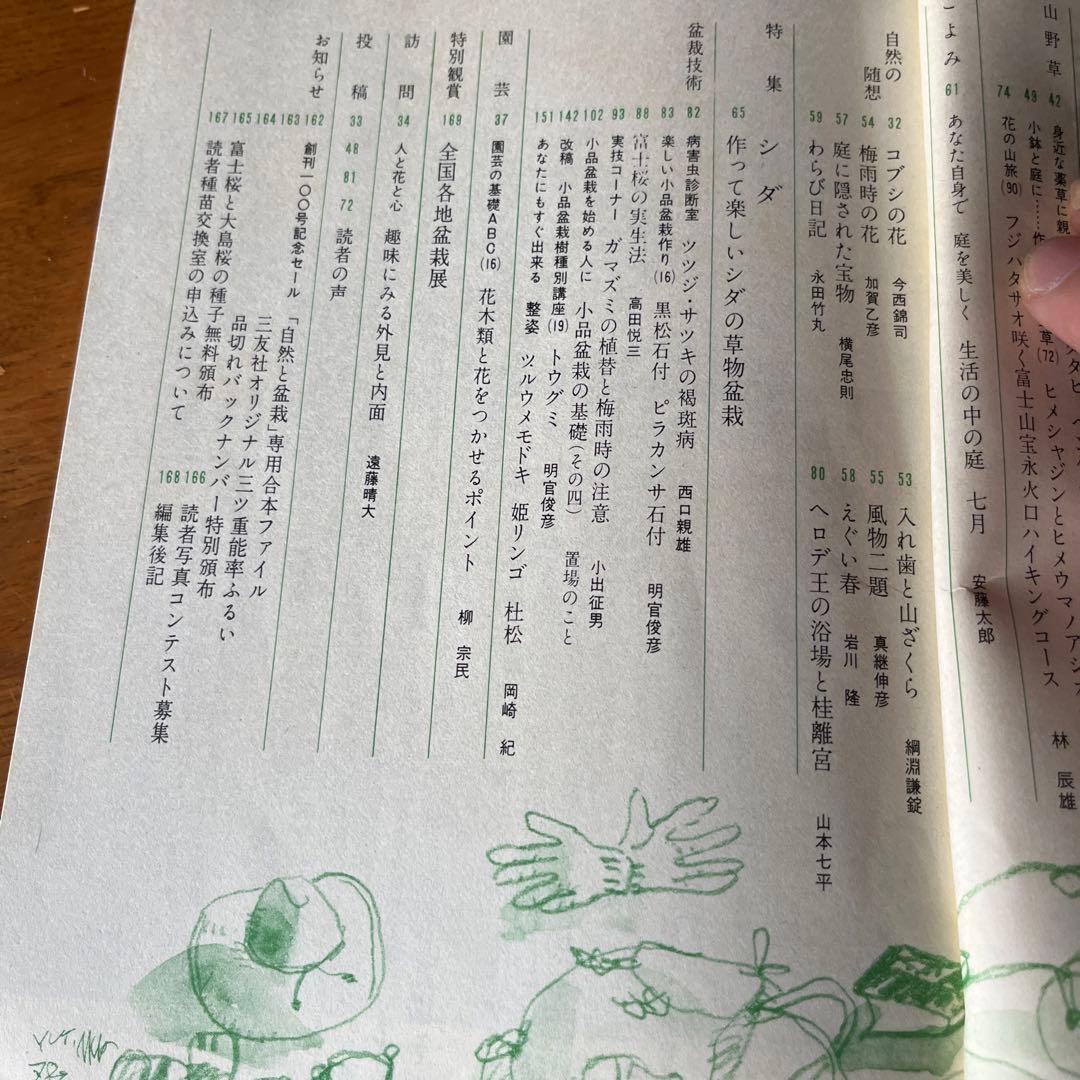 山野草
42 身近な薬草に親
49 小鉢と庭に……作
草(72) ヒメシャジンとヒメウマノアシ
74 花の山旅(90) フジハタザオ咲く富士山宝永火口ハイキングコース 林 辰雄
こよみ
61 あなた自身で 庭を美しく 生活の中の庭 七月 安藤太郎
自然の随想
32 コブシの花 今西錦司
53 入れ歯と山ざくら 綱淵謙錠
54 梅雨時の花 加賀乙彦
55 風物二題 真継伸彦
57 庭に隠された宝物 横尾忠則
58 えぐい春 岩川 隆
59 わらび日記 永田竹丸
80 ヘロデ王の浴場と桂離宮 山本七平
特集
シダ
65 作って楽しいシダの草物盆栽
盆栽技術
82 病害虫診断室 ツツジ・サツキの褐斑病 西口親雄
83 楽しい小品盆栽作り(16) 黒松石付 ピラカンサ石付 明官俊彦
88 富士桜の実生法 高田悦三
93 実技コーナー ガマズミの植替と梅雨時の注意 小出征男
102 小品盆栽を始める人に 小品盆栽の基礎(その四) 置場のこと
142 改稿 小品盆栽樹種別講座(19) トウグミ 明官俊彦
151 あなたにもすぐ出来る 整姿 ツルウメモドキ 姫リンゴ 杜松 岡崎 紀
園芸
37 園芸の基礎ABC(16) 花木類と花をつかせるポイント 柳 宗民
特別観賞
169 全国各地盆栽展
訪問
34 人と花と心 趣味にみる外見と内面 遠藤晴大
投稿
33 48 81 72 読者の声
お知らせ
162 創刊一〇〇号記念セール 「自然と盆栽」専用合本ファイル
163 三友社オリジナル三ツ重能率ふるい
164 品切れバックナンバー特別頒布
165 富士桜と大島桜の種子無料頒布
166 読者写真コンテスト募集
167 読者種苗交換室の申込みについて
168 編集後記